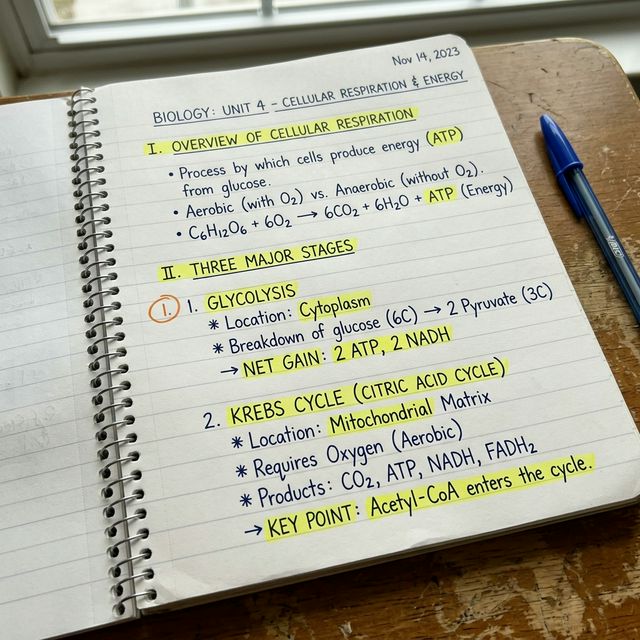 Nov 14, 2023
BIOLOGY: UNIT 4 – CELLULAR RESPIRATION & ENERGY
I. OVERVIEW OF CELLULAR RESPIRATION
• Process by which cells produce energy (ATP)
from glucose.
• Aerobic (with O₂) vs. Anaerobic (without O₂).
• C₆H₁₂O₆ + 6O₂ → 6CO₂ + 6H₂O + ATP (Energy)
II. THREE MAJOR STAGES
1. 1. GLYCOLYSIS
* Location: Cytoplasm
* Breakdown of glucose (6C) → 2 Pyruvate (3C)
→ NET GAIN: 2 ATP, 2 NADH
2. KREBS CYCLE (CITRIC ACID CYCLE)
* Location: Mitochondrial Matrix
* Requires Oxygen (Aerobic)
* Products: CO₂, ATP, NADH, FADH₂
→ KEY POINT: Acetyl-CoA enters the cycle.
BIC